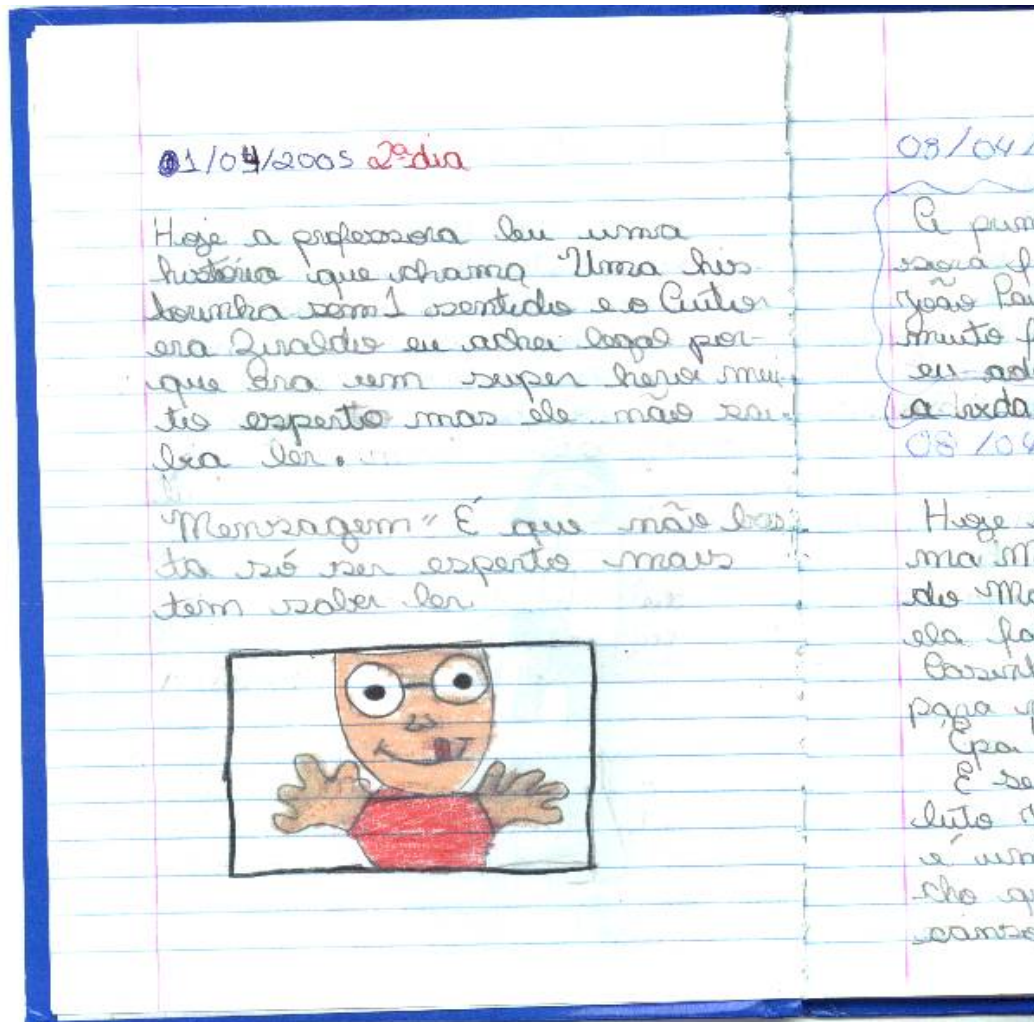 01/04/2005 2º dia
Hoje a professora leu uma
história que chama Uma his
torinha sem 1 sentido e o Autor
era Ziraldo eu achei legal por-
que Era um super herói mui-
to esperto mas ele não sa-
bia ler.
"Mensagem" É que não bas-
ta só ser esperto mais
tem saber ler
03/04/
A
João
muito
eu
a
08/04
Hoje
ma
do
ela
para
Epa
E se
luto
é um
cho